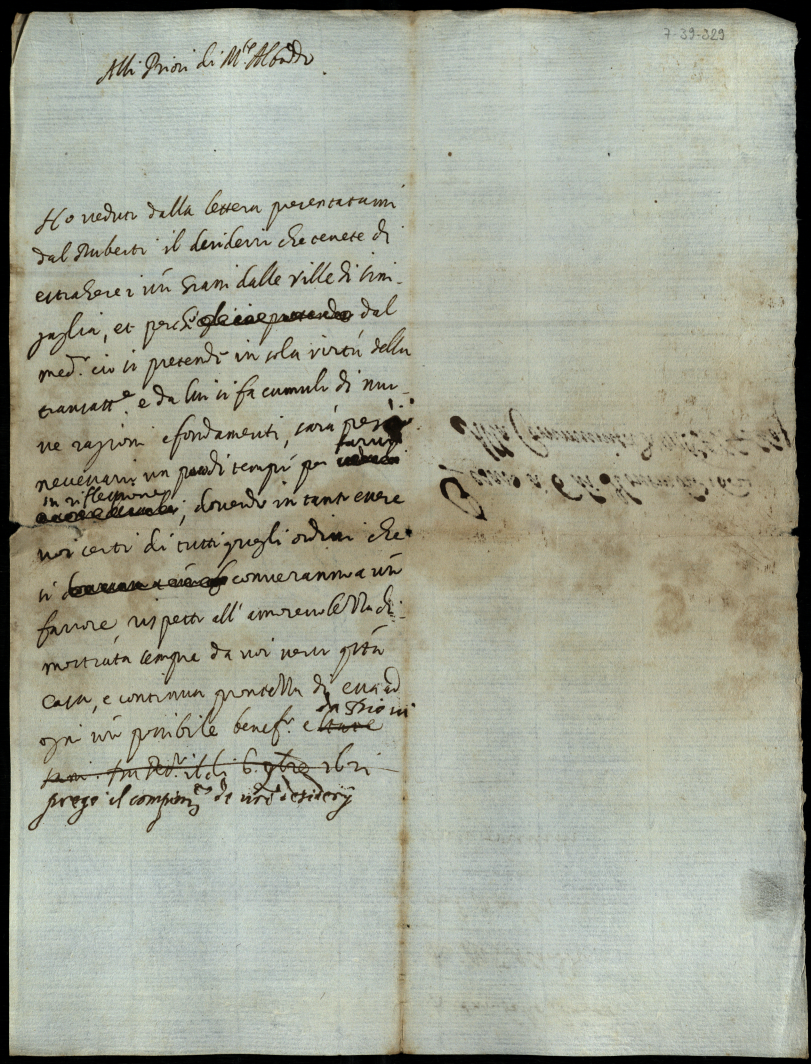 7-39-329
Alli Priori di M.te Alboddo
Ho veduto dalla lettera presentatami
dal Ruberti il desiderio che tenete di
estrahere i vri grani dalle ville di Sini-
gaglia, et perche dal
med.o ciò si pretende in sola virtù della
transatt.e e da lui si fa cumulo di nuo-
ve ragioni e fondamenti, sarà però
necessario un poco di tempo per farvi
in riflessione, dovendo in tanto essere
voi certi di tutti quegli ordini che
si converranno a vro
favore rispetto all' amorevolezza di-
mostrata sempre da voi verso q.sta
Casa, e continua prontezza di essa ad
ogni vro possibile benef.o e da Dio vi
il di 6. 9bre
prego il compim.to de vri desiderij
Alla Communità